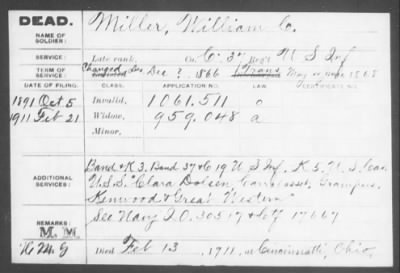 DEAD.
Miller, William C.
NAME OF SOLDIER:
SERVICE:
Late rank, Co. C. 37 Reg't U S Inf
TERM OF SERVICE:
Changed Dec ? 1866
DATE OF FILING. CLASS. APPLICATION NO. LAW. CERTIFICATE NO.
1891 Oct 5 Invalid, 1061.511
1911 Feb 21 Widow, 959.048 a
Minor,
ADDITIONAL SERVICES:
Band & K 3, Band 37 & C 19 U S Inf. K 5, U S
U.S.S. "Clara Dolsen
Kenwood & Great Western"
See Navy 30517 & 17667
REMARKS: M. M.
Died Feb 13, 1911, at Cincinnatti, Ohio,